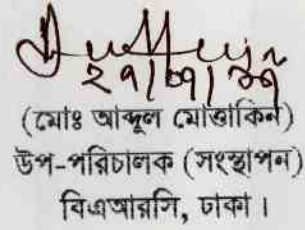 ২৭/০৭/১১
(মোঃ আব্দুল মোত্তাকিন)
উপ-পরিচালক (সংস্থাপন)
বিএআরসি, ঢাকা।